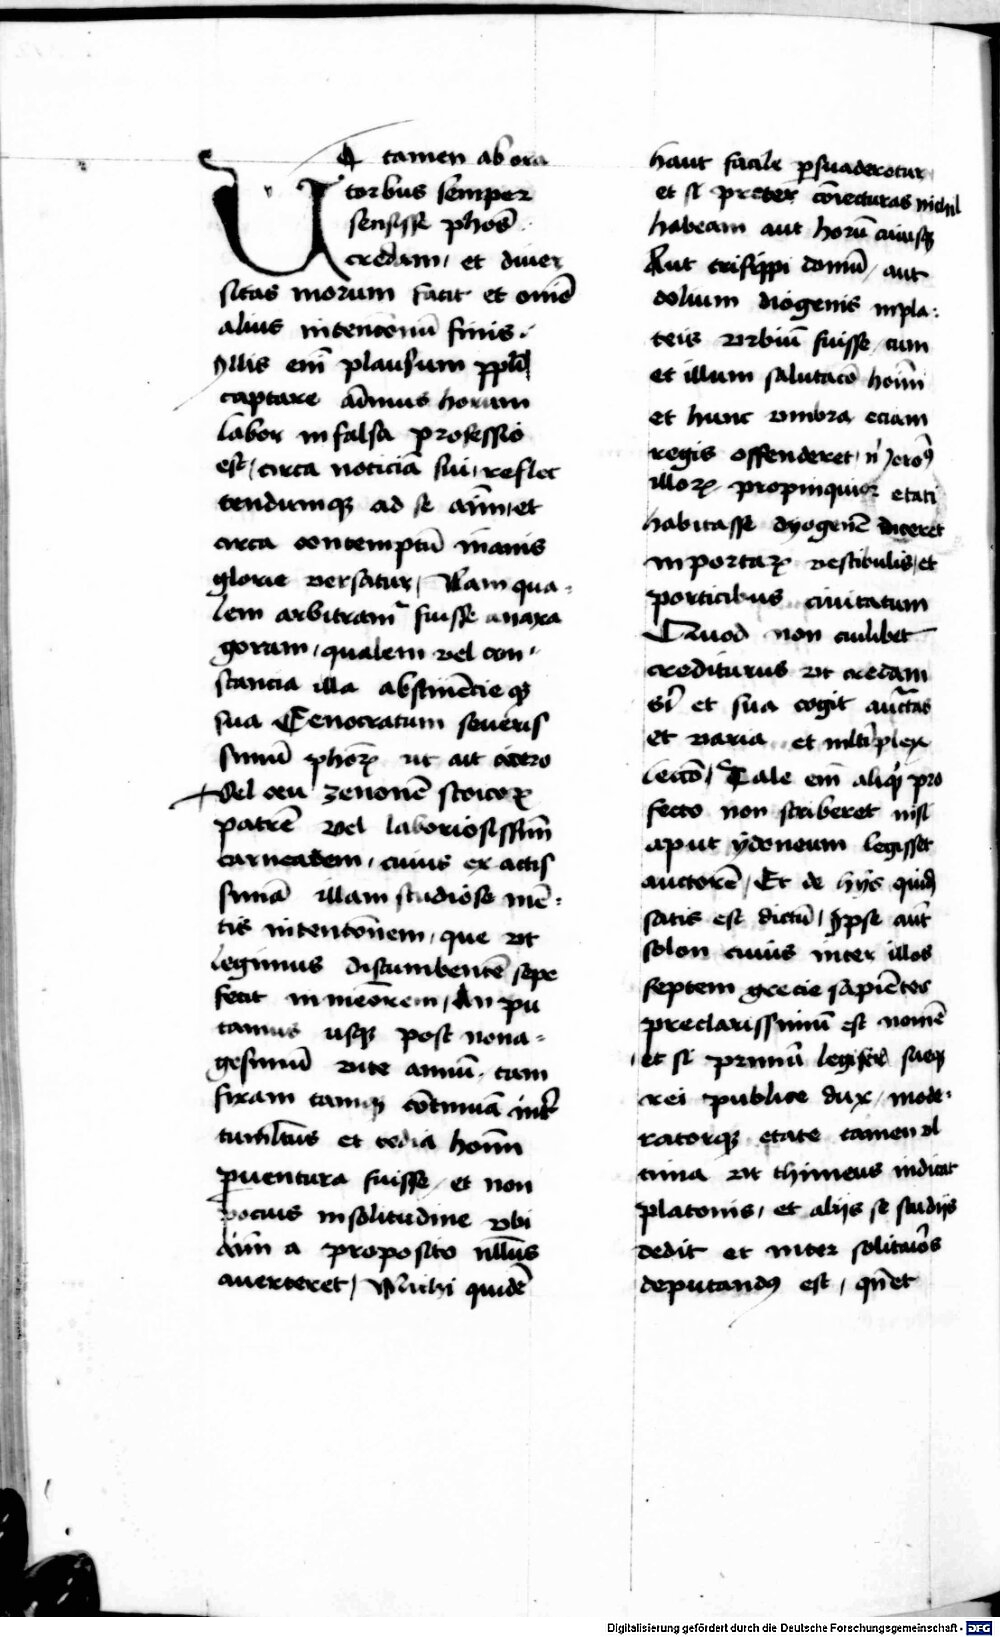 Ut tamen ab ora
torbus semper
sensisse phos̄
credam, et diuer
sitas morum facit et om̄e
alius intenconū finis.
yllis em̄ plausum ppl̄i
captare ād̄mus horum
labor in falsa professio
est, circa noticiā sui, reflec
tendumqꝫ ad se aīm, et
circa contemptū inanis
glorie versatur, Nam qua-
lem arbitram̄ fuisse anaxa
goram, qualem vel con-
stancia illa abstinēcie qꝫ
sua Cenocratum seueris
simū phorꝝ ut ait cicero
Vel ceu zenonē stoicoꝝ
patrē vel laboriosissim̄
carneadem, cuius ex actis
sūmā illam studiose mē-
tis intentōnem, que vt
legimus discumbentē sepe
fecit inmeōrem, An pu
tamus usqꝫ post nona-
gesimū vite annū, tam
fixam tamqꝫ cōtinuā int̄
tumltus et tedia hoīm
ꝑuentura fuisse, et non
pocius in solitudine vbi
aīm a proposito nllus
auerteret, Michi quidē
haut facile ꝑsuaderetur
et si preter cōiecturas nichil
habeam aut horū cuiusqꝫ
Aut crisippi domū, aut
dolium diogenis in pla-
teis vrbiū fuisse, cum
et illum salutacō hoīm
et hunc vmbra eciam
regis offenderet, n̄ Jerōꝰ
illoꝝ propinquior etati
habitasse dyogenē diceret
in portaꝝ vestibulis, et
porticibus ciuitatum
Quod non cuilibet
crediturus vt credam
si et sua cogit auctas̄
et varia et mltiplex
leccō, Tale em̄ aliqꝫ pro
fecto non scriberet nisi
aput ydoneum legisset
auctorē, Et de hijs quidꝫ
satis est dictū, Ipse aut̄
solon cuius inter illos
septem grecie sapiētes
preclarissimū est nomē
et si primū legifer sueqꝫ
rei publice dux, mode-
ratorqꝫ etate tamen vl
tima vt thimeus indicat
platonis, et alijs se studijs
dedit et inter solitarios
deputandꝰ est, qn̄ et
Digitalisierung gefördert durch die Deutsche Forschungsgemeinschaft - DFG